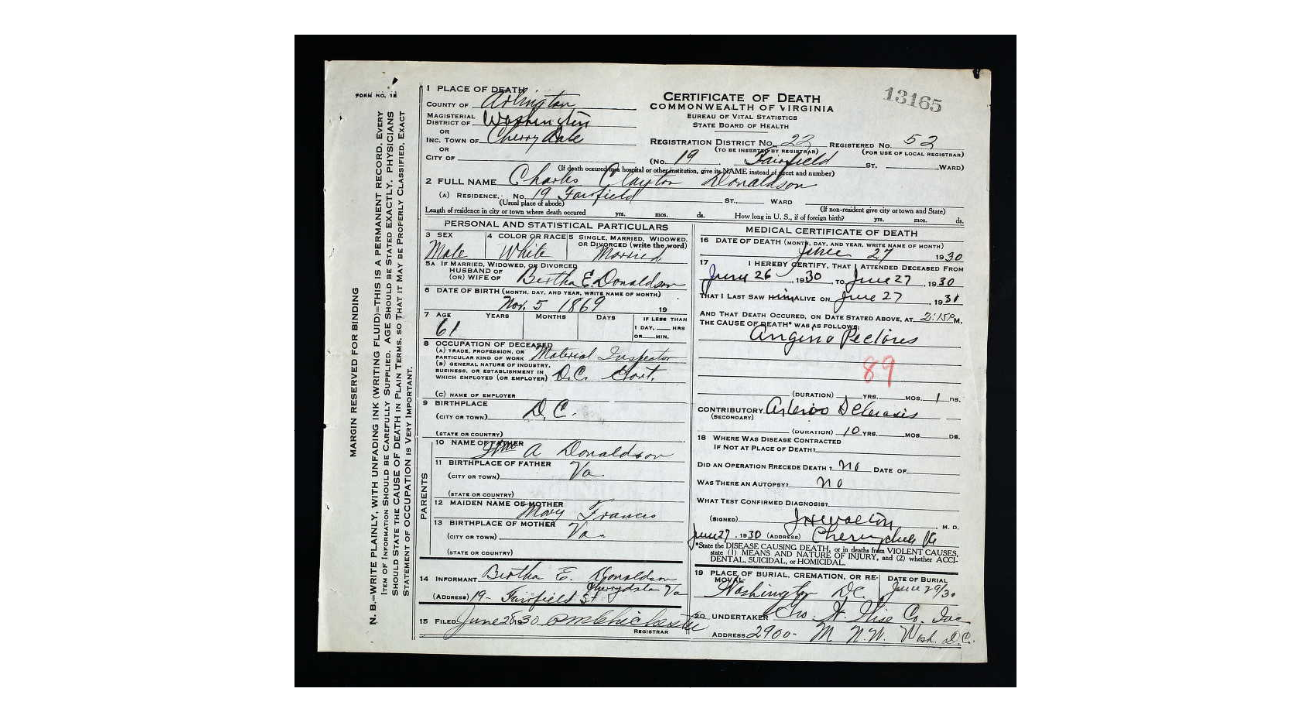 FORM NO. 12
MARGIN RESERVED FOR BINDING
N. B.—WRITE PLAINLY, WITH UNFADING INK (WRITING FLUID)—THIS IS A PERMANENT RECORD. EVERY
ITEM OF INFORMATION SHOULD BE CAREFULLY SUPPLIED. AGE SHOULD BE STATED EXACTLY. PHYSICIANS
SHOULD STATE THE CAUSE OF DEATH IN PLAIN TERMS, SO THAT IT MAY BE PROPERLY CLASSIFIED. EXACT
STATEMENT OF OCCUPATION IS VERY IMPORTANT.
1 PLACE OF DEATH
COUNTY OF Arlington
MAGISTERIAL
DISTRICT OF Washington
OR
INC. TOWN OF Cherry Dale
OR
CITY OF
CERTIFICATE OF DEATH
COMMONWEALTH OF VIRGINIA
BUREAU OF VITAL STATISTICS
STATE BOARD OF HEALTH
13165
REGISTRATION DISTRICT No. 22 REGISTERED No. 52
(TO BE INSERTED BY REGISTRAR) (FOR USE OF LOCAL REGISTRAR)
(No. 19 Fairfield ST. WARD)
(If death occured in a hospital or other institution, give its NAME instead of street and number)
2 FULL NAME Charles Clayton Donaldson
(A) RESIDENCE. No. 19 Fairfield ST., WARD
(Usual place of abode) (If non-resident give city or town and State)
Length of residence in city or town where death occured yrs. mos. ds. How long in U. S., if of foreign birth? yrs. mos. ds.
PERSONAL AND STATISTICAL PARTICULARS
3 SEX 4 COLOR OR RACE 5 SINGLE, MARRIED, WIDOWED, OR DIVORCED (write the word)
Male White Married
5A IF MARRIED, WIDOWED, OR DIVORCED
HUSBAND OF
(OR) WIFE OF Bertha E. Donaldson
6 DATE OF BIRTH (MONTH, DAY, AND YEAR, WRITE NAME OF MONTH)
Nov. 5 1869 19
7 AGE YEARS MONTHS DAYS IF LESS THAN
61 1 DAY, HRS
OR MIN.
8 OCCUPATION OF DECEASED
(A) TRADE, PROFESSION, OR
PARTICULAR KIND OF WORK Material Inspector
(B) GENERAL NATURE OF INDUSTRY,
BUSINESS, OR ESTABLISHMENT IN
WHICH EMPLOYED (OR EMPLOYER) D.C. Govt.
(C) NAME OF EMPLOYER
9 BIRTHPLACE
(CITY OR TOWN) D.C.
(STATE OR COUNTRY)
PARENTS
10 NAME OF FATHER A Donaldson
11 BIRTHPLACE OF FATHER
(CITY OR TOWN) Va
(STATE OR COUNTRY)
12 MAIDEN NAME OF MOTHER
Mary Francis
13 BIRTHPLACE OF MOTHER
(CITY OR TOWN) Va.
(STATE OR COUNTRY)
14 INFORMANT Bertha E. Donaldson
(ADDRESS) 19- Fairfield St Cherrydale Va
15 FILED June 28 1930
REGISTRAR
MEDICAL CERTIFICATE OF DEATH
16 DATE OF DEATH (MONTH, DAY, AND YEAR, WRITE NAME OF MONTH)
June 27 1930
17 I HEREBY CERTIFY, THAT I ATTENDED DECEASED FROM
June 26, 1930 TO June 27, 1930
THAT I LAST SAW him ALIVE ON June 27, 1931
AND THAT DEATH OCCURED, ON DATE STATED ABOVE, AT 2:15P M.
THE CAUSE OF DEATH* WAS AS FOLLOWS:
Angina Pectoris
89
(DURATION) YRS. MOS. 1 DS.
CONTRIBUTORY Arterio Sclerosis
(SECONDARY)
(DURATION) 10 YRS. MOS. DS.
18 WHERE WAS DISEASE CONTRACTED
IF NOT AT PLACE OF DEATH?
DID AN OPERATION PRECEDE DEATH? No DATE OF
WAS THERE AN AUTOPSY? No
WHAT TEST CONFIRMED DIAGNOSIS?
(SIGNED) M. D.
June 27, 1930 (ADDRESS) Cherrydale Va
*State the DISEASE CAUSING DEATH, or in deaths from VIOLENT CAUSES,
state (1) MEANS AND NATURE OF INJURY, and (2) whether ACCI-
DENTAL, SUICIDAL, or HOMICIDAL.
19 PLACE OF BURIAL, CREMATION, OR RE- DATE OF BURIAL
MOVAL
Washington D.C. June 29/30
20 UNDERTAKER Geo. W. Wise Co. Inc
ADDRESS 2900- M N.W. Wash. D.C.